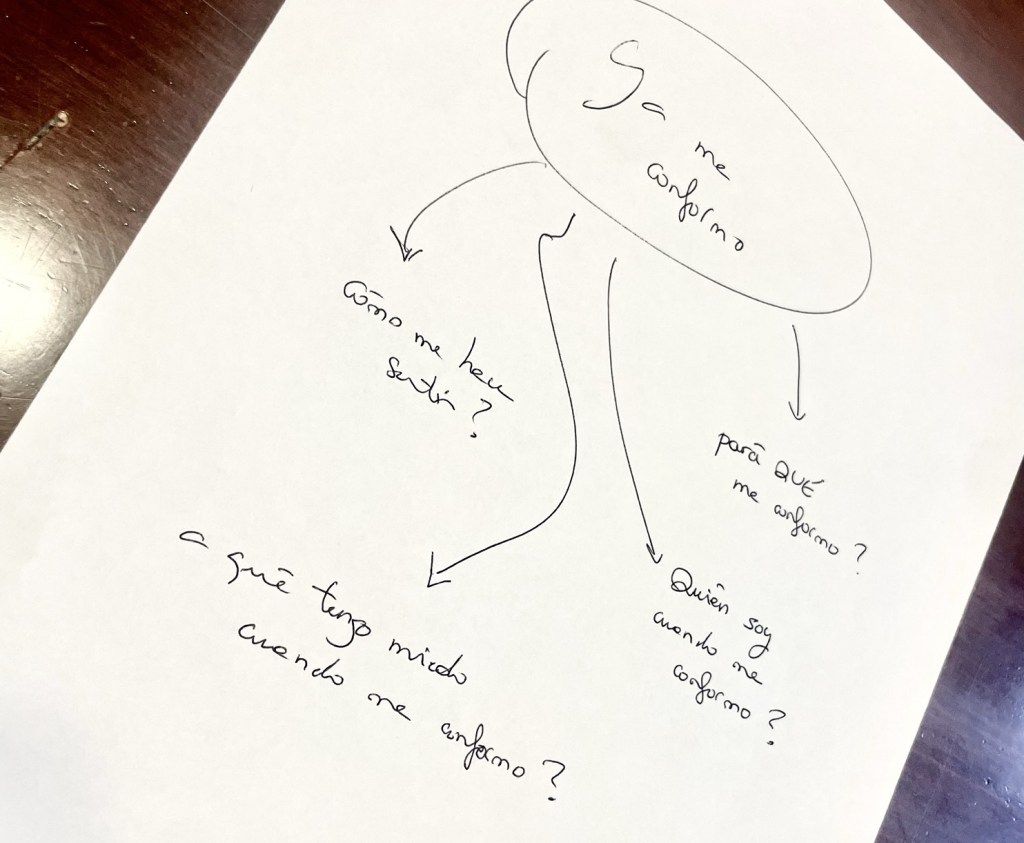 Sa me
conformo
Cómo me hace
sentir?
a qué tengo miedo
cuando me conformo?
Quién soy
cuando me
conformo?
para QUÉ
me conformo?